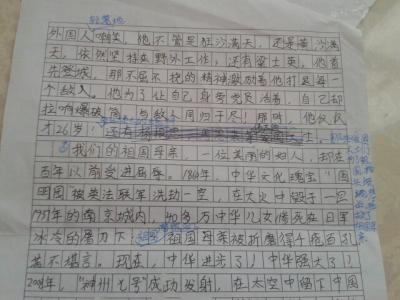 轻蔑地
外国人嘲笑，他不管是狂沙满天，还是黄沙满
天，依然坚持在野外工作；还有梁士英，他首
先登城，那不屈不挠的精神激励着他打退每一
个敌人。他为了让自己身旁党员活着，自己却
拉响爆破筒，与敌人同归于尽！那时，他仅仅
才26岁！还有
我们的祖国母亲，一位美丽的妇人，却在
百年以前受进屈辱。1860年，中华文化瑰宝“圆
明园”被英法联军洗劫一空，在大火中毁于一旦
1937年的南京城内，40多万中华儿女惨死在日军
冰冷的屠刀下，祖国母亲被折磨得千疮百孔
苦不堪言。现在，中华进步了！中华强大了！
2008年，“神州七号”成功发射，在太空中留下中国